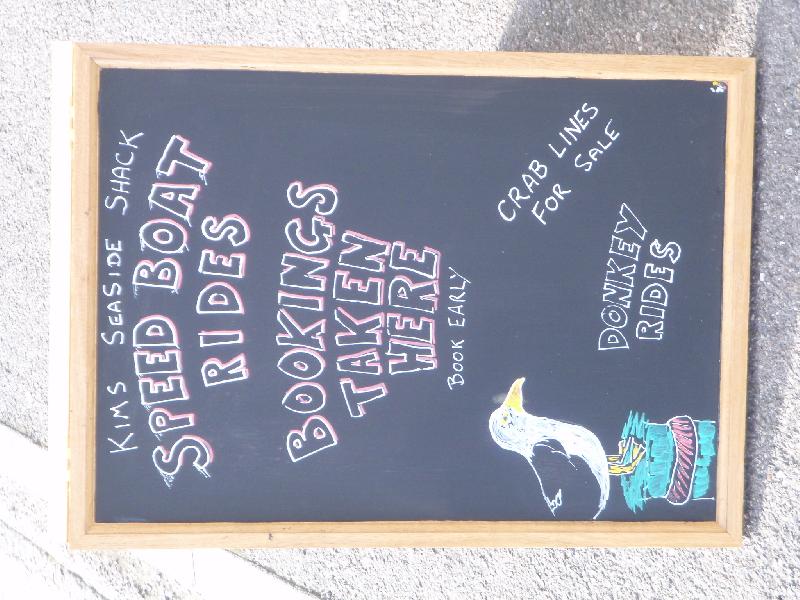 KIMS SEASIDE SHACK
SPEED BOAT
RIDES
BOOKINGS
TAKEN
HERE
BOOK EARLY
CRAB LINES
FOR SALE
DONKEY
RIDES